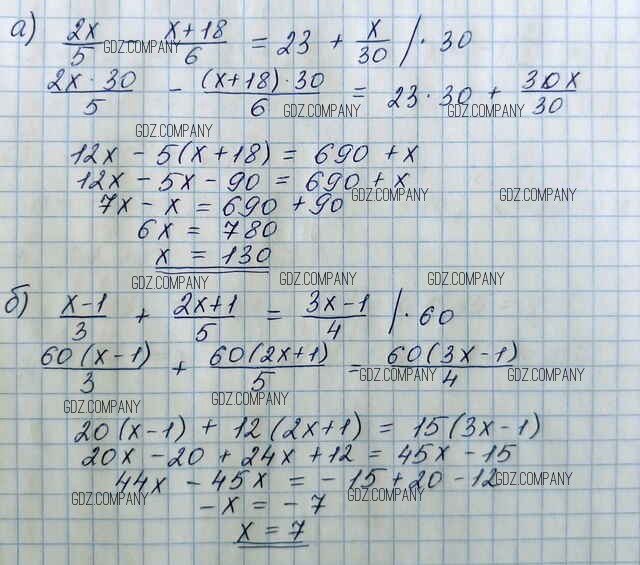 а) 2x/5 − (x+18)/6 = 23 + x/30 /· 30
GDZ.COMPANY
2x · 30/5 − (x+18) · 30/6 = 23 · 30 + 30x/30
GDZ.COMPANY GDZ.COMPANY GDZ.COMPANY
12x − 5(x+18) = 690 + x
12x − 5x − 90 = 690 + x
GDZ.COMPANY GDZ.COMPANY
7x − x = 690 + 90
6x = 780
x = 130
GDZ.COMPANY GDZ.COMPANY GDZ.COMPANY
б) (x−1)/3 + (2x+1)/5 = (3x−1)/4 /· 60
60(x−1)/3 + 60(2x+1)/5 = 60(3x−1)/4
GDZ.COMPANY GDZ.COMPANY
GDZ.COMPANY GDZ.COMPANY
20(x−1) + 12(2x+1) = 15(3x−1)
20x − 20 + 24x + 12 = 45x − 15
44x − 45x = −15 + 20 − 12
GDZ.COMPANY
GDZ.COMPANY GDZ.COMPANY
−x = −7
x = 7